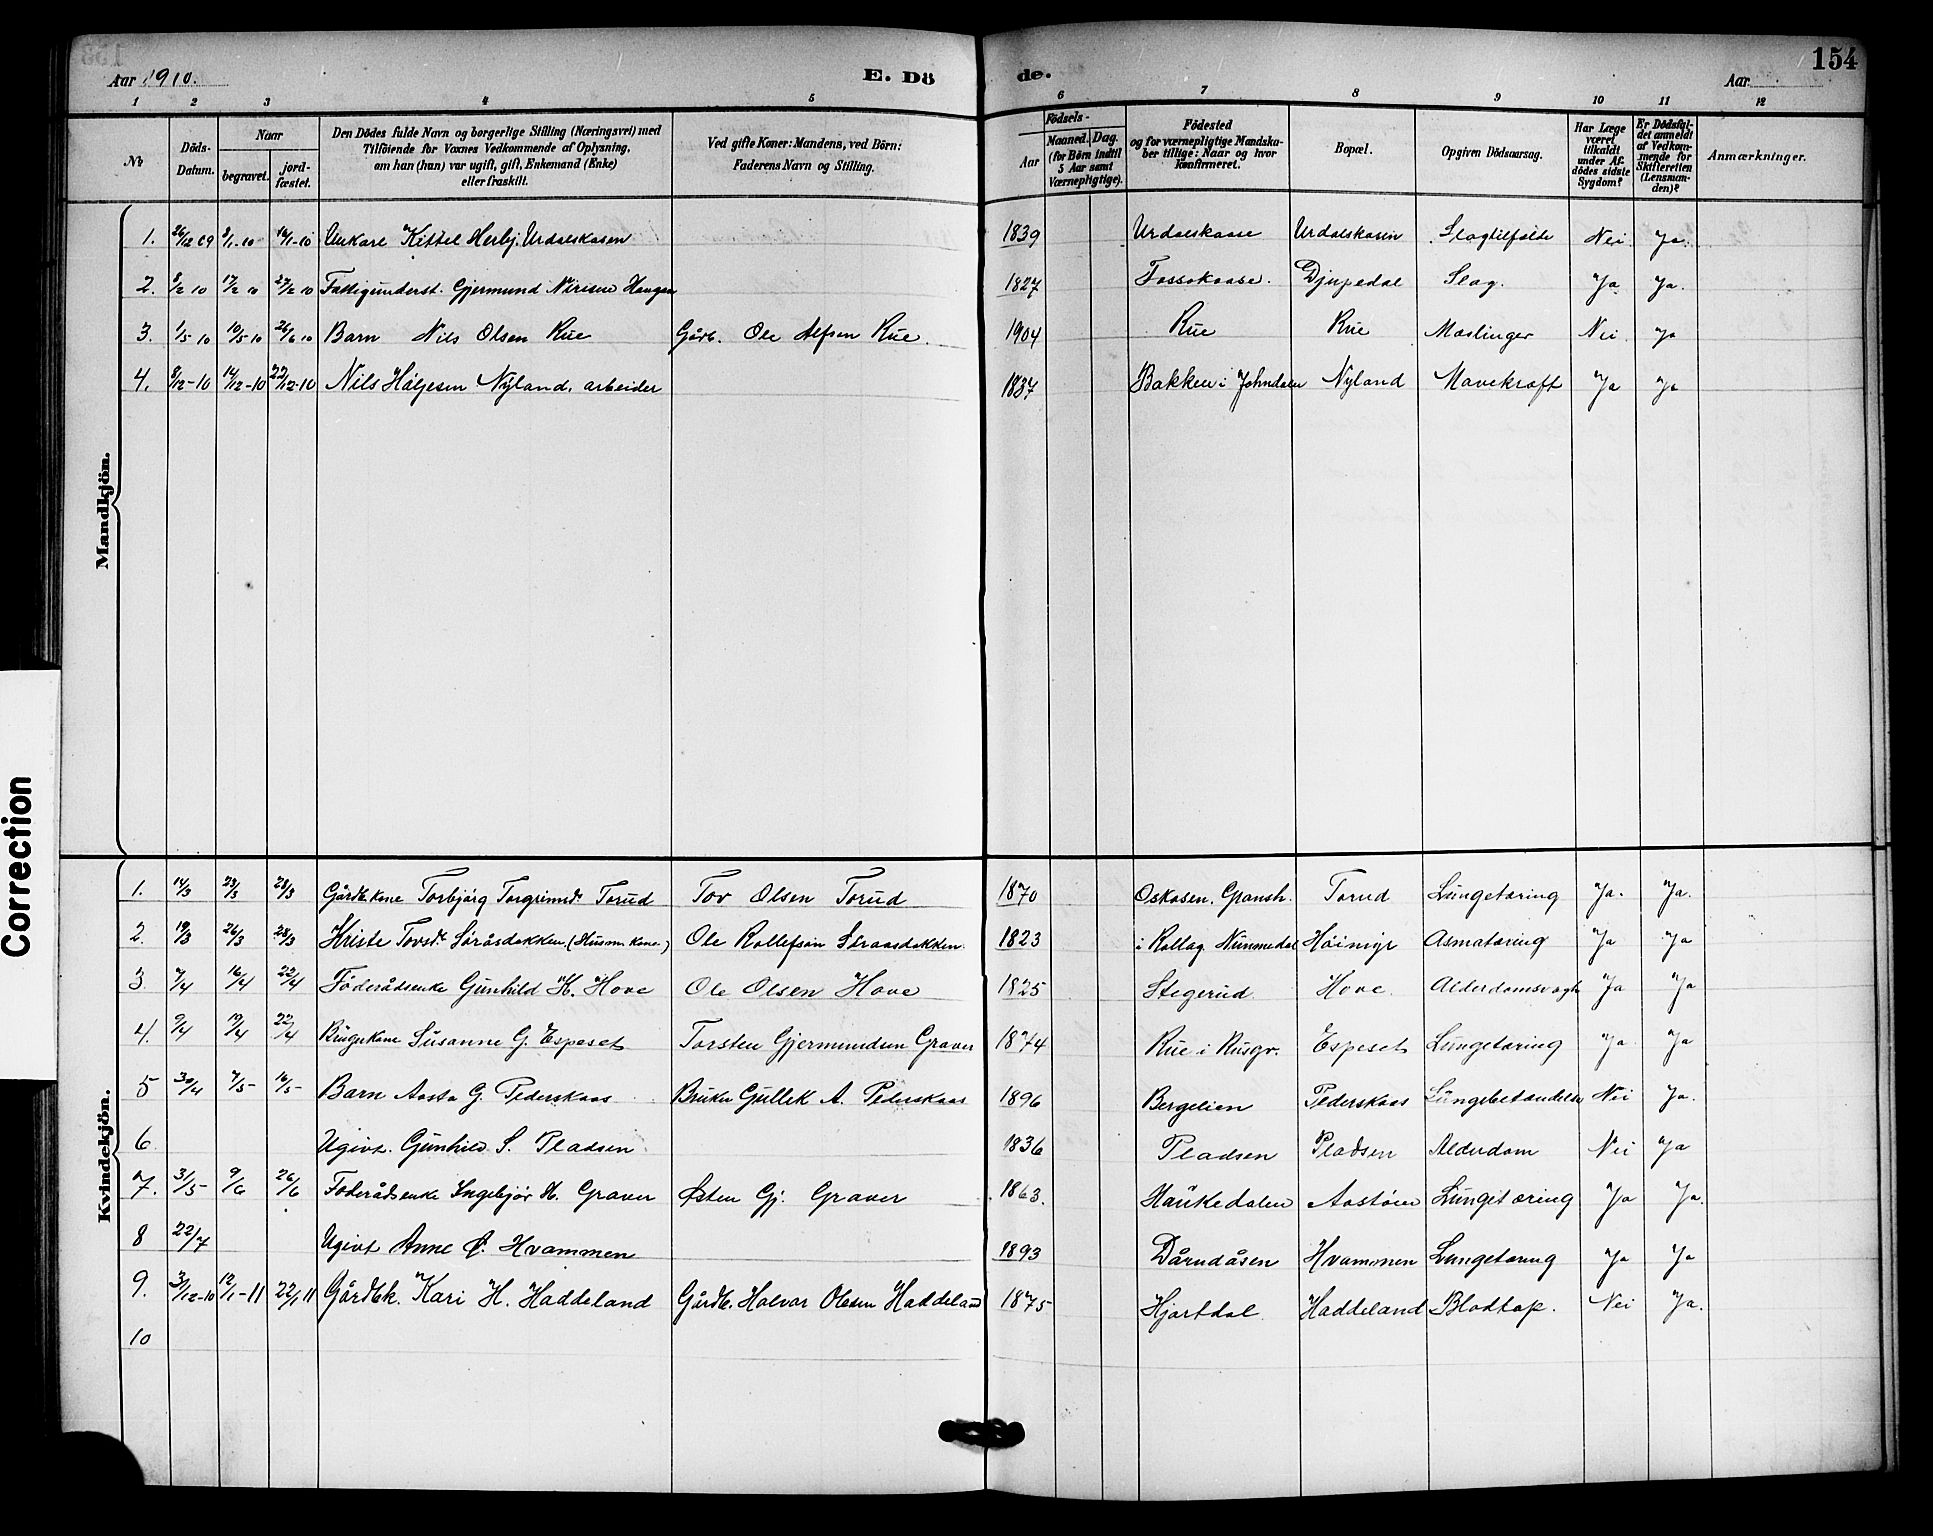 154
Aar 1910. E. Dö de. Aar
1 2 3 4 5 6 7 8 9 10 11 12
No
Döds-Datum.
Naar
begravet.
jordfæstet.
Den Dödes fulde Navn og borgerlige Stilling (Næringsvei) med
Tilföiende for Voxnes Vedkommende af Oplysning,
om han (hun) var ugift, gift, Enkemand (Enke)
eller fraskilt.
Ved gifte Koner: Mandens, ved Börn:
Faderens Navn og Stilling.
Födsels-
Aar
Maaned. Dag.
(for Börn indtil
5 Aar samt
Værnepligtige).
Födested
og for værnepligtige Mandska-
ber tillige: Naar og hvor
Konfirmeret.
Bopæl.
Opgiven Dödsaarsag.
Har Læge
været
tilkaldt
under Af-
dödes sidste
Sygdom?
Er Dödsfal-
det anmeldt
af Vedkom-
mende for
Skifteretten
(Lensman-
den)?
Anmærkninger.
Mandkjön.
1. 26/12 09 2/1-10 16/1-10 Unkare Kittel Herbj. Urdalskasen 1839 Urdalskaase Urdalskasin Slagtilfælde Nei Ja.
2. 8/2 10 17/2 10 27/2 10 Fattigunderst. Gjermund Nirisen Haugen 1827 Fossokaase. Djupedal Slag. Ja Ja.
3. 1/5 10 10/5 10 26/6 10 Barn Nils Olsen Rue Gårb. Ole Alfsen Rue. 1904 Rue Rue Mæslinger Nei. Ja
4. 8/12-10 14/12-10 22/12-10 Nils Håljesen Nyland, arbeider 1837 Bakken i Johndalen Nyland Mavekræft Ja Ja
Kvindekjön.
1. 14/3 23/3 28/3 Gårdbr.kone Torbjörg Torgrimsd. Torud Tov Olsen Torud 1870 Oskasen, Gransh. Torud Lungetæring Ja. Ja.
2. 19/3 26/3 28/3 Kriste Tovsd. Söråsdokken (Husm. Kone.) Ole Rollefson Söraasdokken 1823 i Rollag Nummedal Höimyr Asmatæring Ja Ja
3. 7/4 16/4 22/4 Föderådsenke Gunhild H. Hove Ole Olsen Hove 1825 Stegerud Hove. Alderdomsvagh Ja Ja
4. 9/4 19/4 22/4 Brugerkone Susanne G. Espeset Torsten Gjermundsen Graver 1874 Rue i Rusgr. Espeset Lungetæring Ja Ja
5 30/4 7/5- 16/5- Barn Aasta G. Pederskaas Bruker Gullek A. Pederskaas 1896 Bergelien Pederskaas Lungebetændelse Nei Ja.
6. Ugivt. Gunhild S. Pladsen 1836 Pladsen Pladsen Alderdom Nei Ja
7. 31/5- 9/6 26/6 Föderådsenke Ingebjör H. Graver Østen Gj. Graver 1863. Haukedalen Aastöien Lungetæring Ja Ja.
8 22/7 Ugivt Anne O. Hvammen 1893 Dårudåsen Hvammen Lungetæring Ja Ja
9. 31/12-10 12/1-11 22/1 11 Gårdbk. Kari H. Haddeland Gårdb. Halvor Olesen Haddeland 1875 Hjartdal Haddeland Blodtap. Nei Ja.
10
Correction